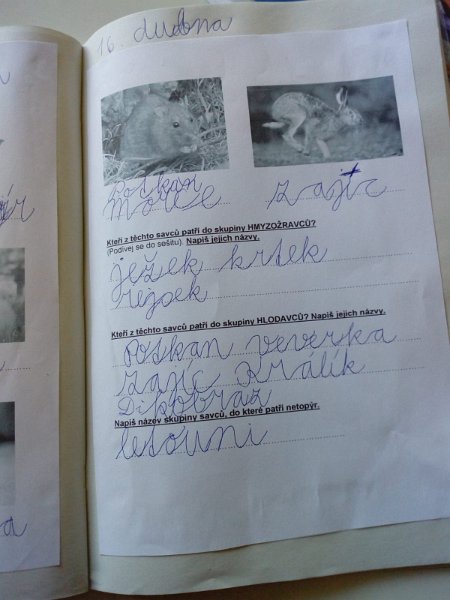 16. dubna
Potkan
zajíc
Kteří z těchto savců patří do skupiny HMYZOŽRAVCŮ?
(Podívej se do sešitu). Napiš jejich názvy.
ježek krtek
rejsek
Kteří z těchto savců patří do skupiny HLODAVCŮ? Napiš jejich názvy.
Potkan veverka
zajíc Králík
Dikobraz
Napiš název skupiny savců, do které patří netopýr.
letouni